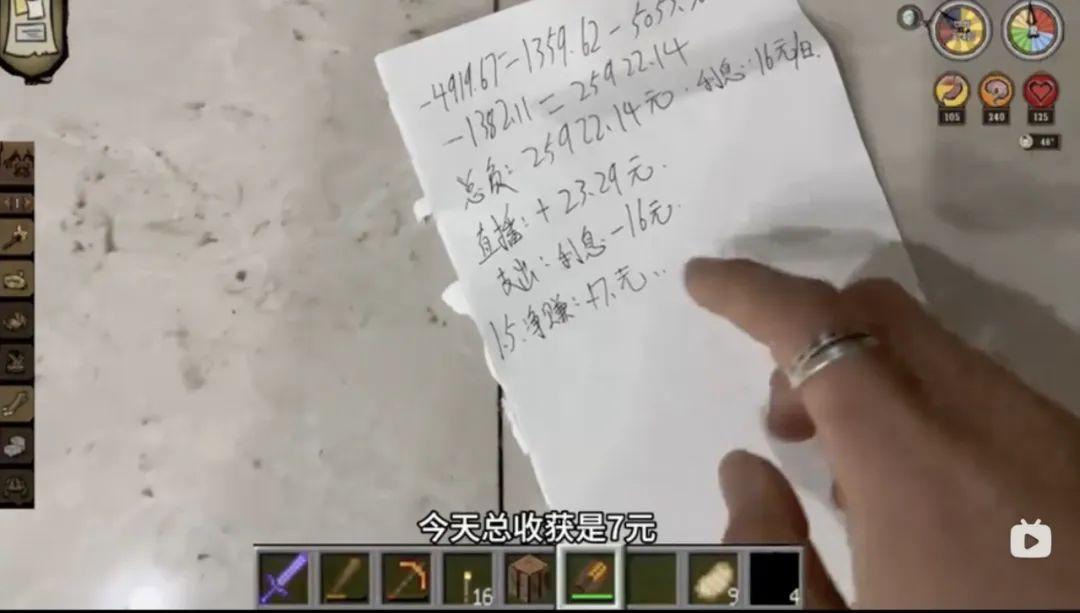 -4919.67-1359.62-5057.
-1382.11=25922.14
总负:25922.14元.利息:16元/日.
直播:+23.29元.
支出:利息-16元.
1.5.净赚:+7.元...
今天总收获是7元
105
240
125
46°
1
16
9
4